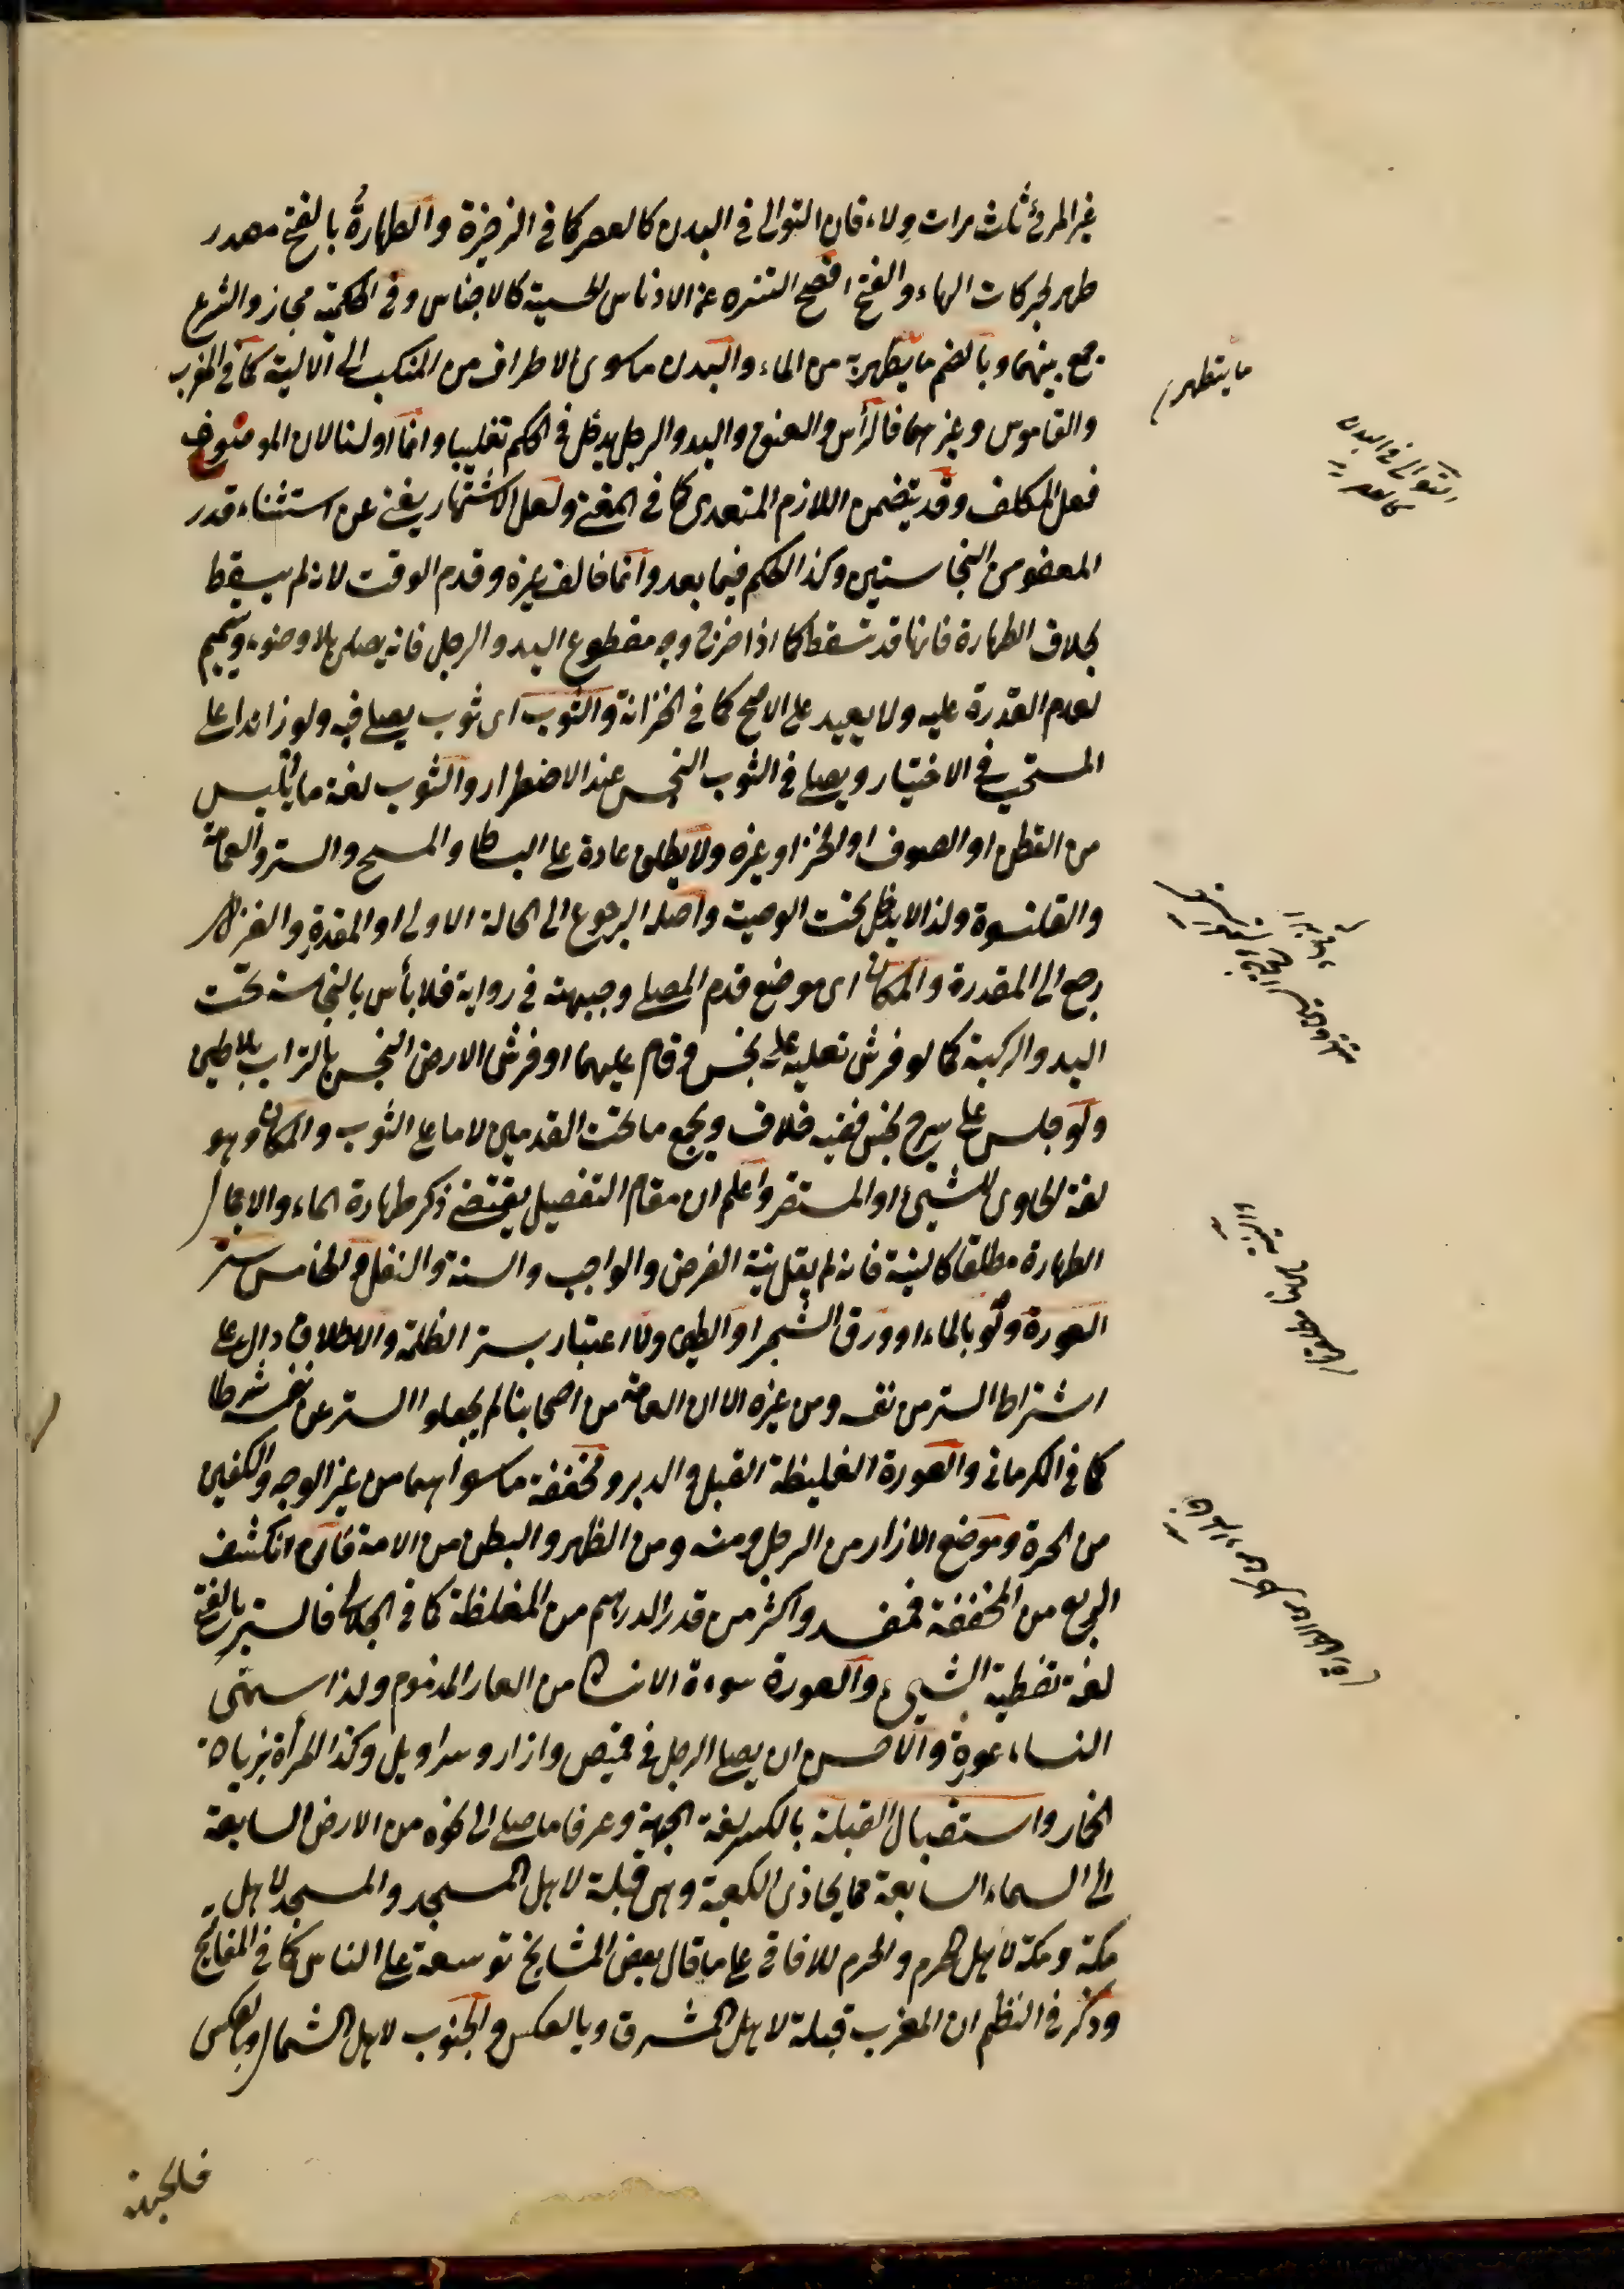 غير المرئى ثلث مرات ولاء فان التوالى فى البدن كالعصر كما فى الزخيرة والطهارة بالفتح مصدر
طهر بحركات الهاء والفتح افصح التنزه عن الادناس الحسية كالاجناس وفى الحكمية مجاز والشرع
جمع بينهما وبالضم ما يتطهر به من الماء والبدن ما سوى الاطراف من المنكب الى الالية كما فى المغرب
والقاموس وغيرهما فالرأس والعنق واليد والرجل يدخل فى الحكم تغليبا وانما اولنا لان الموضوع
فعل المكلف وقد يتضمن اللازم المتعدى كما فى المغنى ولعل الاشتهار يغنى عن استثناء قدر
المعفو من النجاستين وكذا الحكم فيما بعد وانما خالف غيره وقدم الوقت لانه لم يسقط
بخلاف الطهارة فانها قد تسقط كما اذا خرج وجه مقطوع اليد والرجل فانه يصلى بلا وضوء وتيمم
لعدم القدرة عليه ولا يعيد على الاصح كما فى الخزانة والثوب اى ثوب يصلى فيه ولو زائدا على
المستحب فى الاختيار ويصلى فى الثوب النجس عند الاضطرار والثوب لغة ما يلبس
من القطن او الصوف او الخز او غيره ولا يطلق عادة على البساط والمسح والستر والعمامة
والقلنسوة ولذا لا يدخل تحت الوصية واصله الرجوع الى الحالة الاولى او المقدرة والغزل
رجع الى المقدرة والمكان اى موضع قدم المصلى وجبهته فى رواية فلا بأس بالنجاسة تحت
اليد والركبة كما لو فرش نعليه على نجس وقام عليهما او فرش الارض النجس بالتراب بلا طين
ولو جلس على سرج نجس ففيه خلاف ويجمع ما تحت القدمين لا ما على الثوب والمكان وهو
لغة الحاوى للشيئ او المستقر واعلم ان مقام التفصيل يقتضى ذكر طهارة الماء والاجمال
الطهارة مطلقا كالنية فانه لم يقل نية الفرض والواجب والسنة والنفل والخامس ستر
العورة ولو بالماء او ورق الشجر او الطين ولا اعتبار بستر الظلمة والاطلاق دال على
اشتراط الستر من نفسه ومن غيره الا ان العامة من اصحابنا لم يجعلوا الستر عن نفسه شرطا
كما فى الكرمانى والعورة الغليظة القبل والدبر ومخففة ما سواهما من غير الوجه والكفين
من الحرة وموضع الازار من الرجل ومنه ومن الظهر والبطن من الامة فان انكشف
الربع من المخففة فمفسد واكثر من قدر الدرهم من المغلظة كما فى الجلابى فالستر بالفتح
لغة تغطية الشيئ والعورة سوءة الانسان من العار المذموم ولذا سمى
النساء عورة والاحسن ان يصلى الرجل فى قميص وازار وسراويل وكذا المرأة بزيادة
الخمار واستقبال القبلة بالكسر لغة الجهة وعرفا ما صلى الى نحوه من الارض السابعة
الى السماء السابعة مما يحاذى الكعبة وهى قبلة لاهل المسجد والمسجد لاهل
مكة ومكة لاهل الحرم والحرم للافاقى على ما قال بعض المشايخ توسعة على الناس كما فى المفاتيح
وذكر فى النظم ان المغرب قبلة لاهل المشرق وبالعكس والجنوب لاهل الشمال وبالعكس
فالجهة
ما يتطهر
التوالى فى البدن
كالعصر